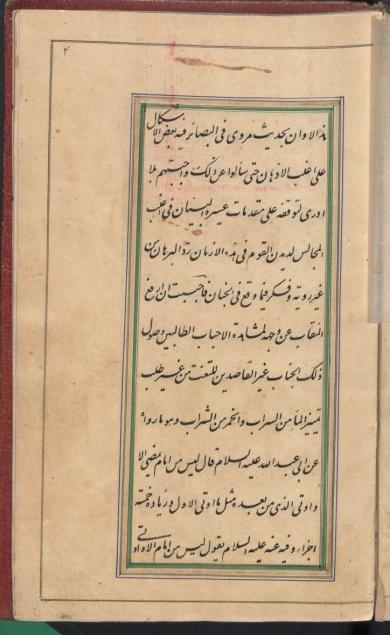 ٢
هذا الاوان بحديث مروى فى البصائر فيه بعض الاشكال
على اغلب الاذهان حتى سألوا عن ذلك واجبتهم بلا
ادرى لتوقفه على مقدمات عسيرة البنيان فى اغلب
المجالس لديدن القوم فى هذه الازمان ردّ البرهان من
غير رويّة وفكر فيما وقع فى الجنان فاحببت ان ارفع
النقاب عن وجهه لمشاهدة الاحباب الطالبين وصول
ذلك الجناب غير القاصدين للتعنت من غير طلب
تميز الماء من السراب والخمر من الشراب وهو ما رواه
عن ابى عبد الله عليه السلام قال ليس من امام يمضى الا
واوتى الذى من بعده مثل ما اوتى الاول وزيادة خمسة
اجزاء وفيه عنه عليه السلام يقول ليس من امام الا واوتى